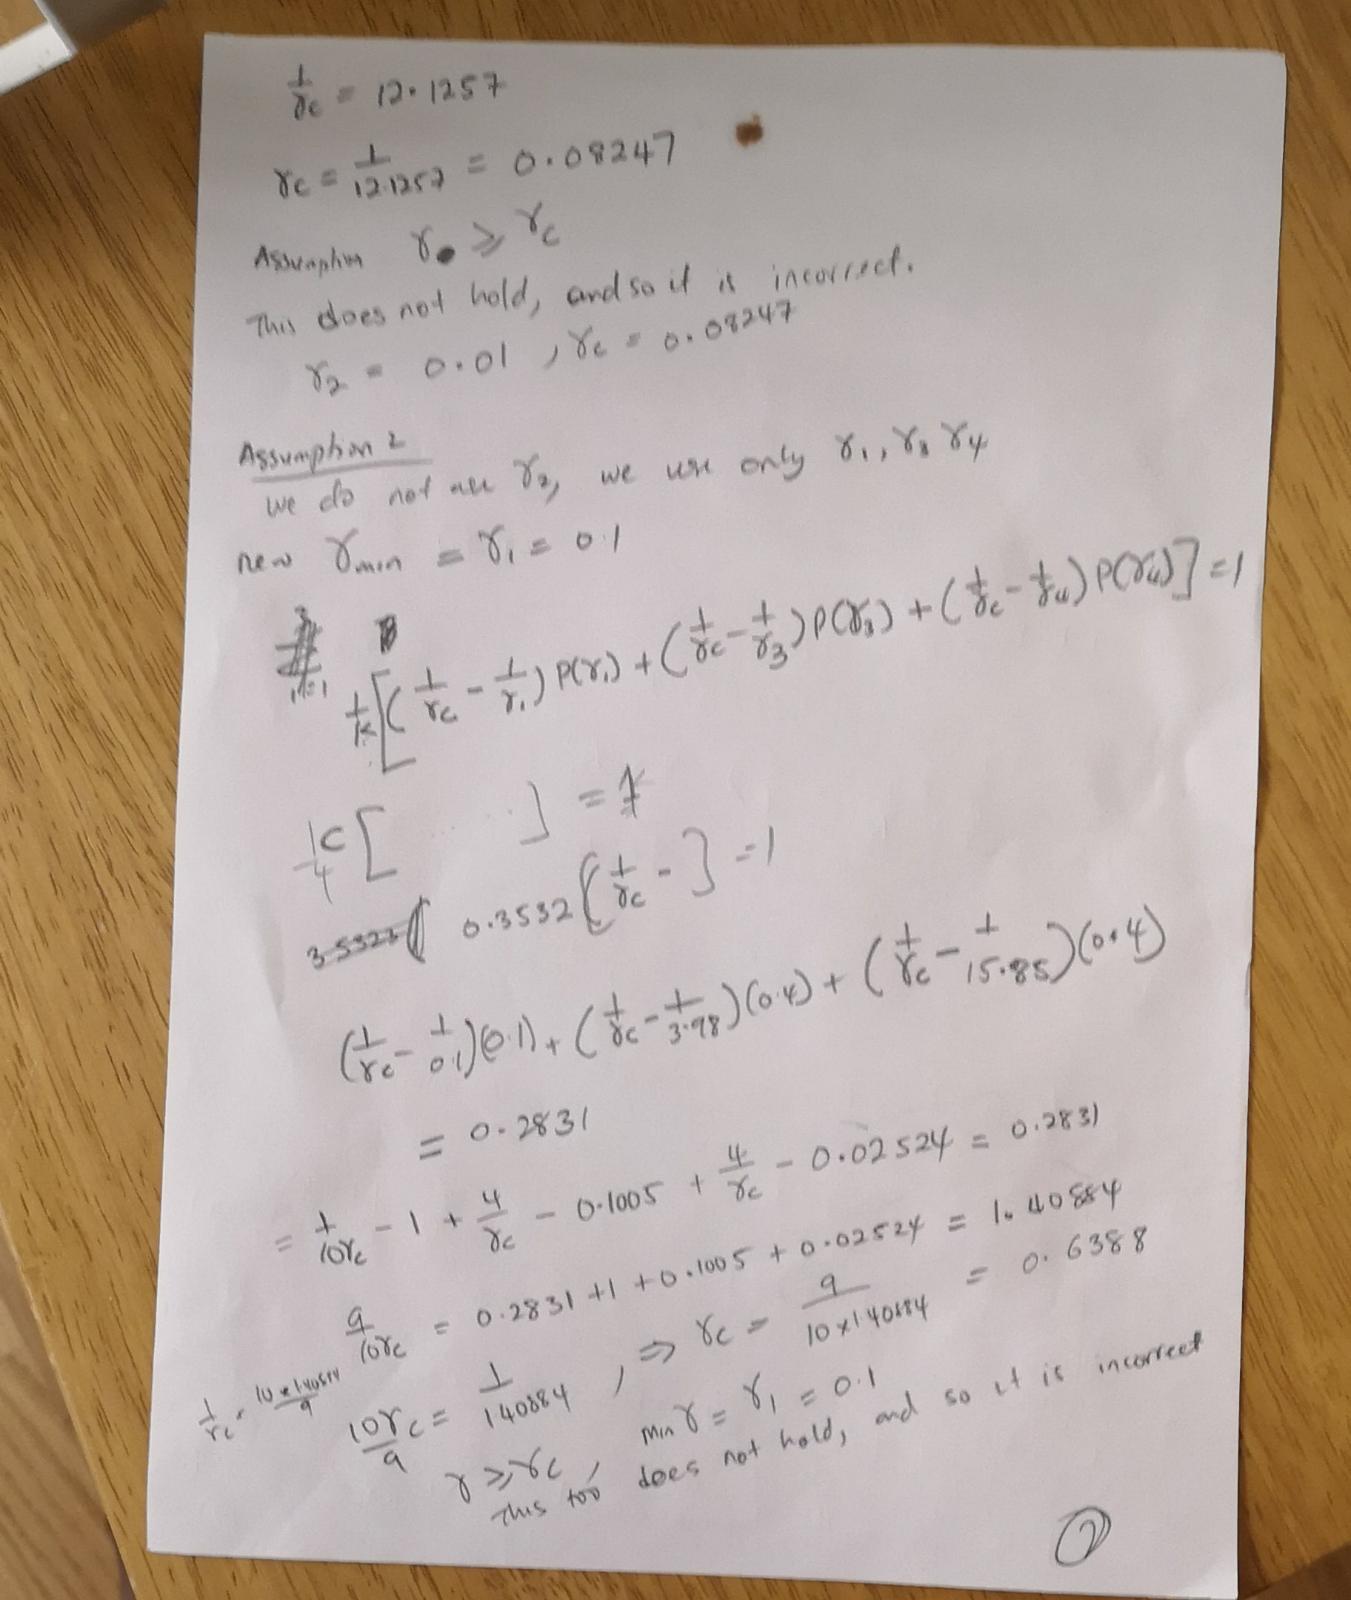 1/γc = 12.1257
γc = 1/12.1257 = 0.08247
Assumption γ ≥ γc
This does not hold, and so it is incorrect.
γ2 = 0.01 , γc = 0.08247
Assumption 2
we do not use γ2, we use only γ1, γ3 γ4
new γmin = γ1 = 0.1
1/K[(1/γc - 1/γ1) P(γ1) + (1/γc - 1/γ3) P(γ3) + (1/γc - 1/γ4) P(γ4)] = 1
[ ..... ] = 1
0.3532 [1/γc - ] = 1
(1/γc - 1/0.1)(0.1) + (1/γc - 1/3.98)(0.4) + (1/γc - 1/15.85)(0.4)
= 0.2831
= 1/10γc - 1 + 4/γc - 0.1005 + 4/γc - 0.02524 = 0.2831
9/10γc = 0.2831 + 1 + 0.1005 + 0.02524 = 1.40884
10γc/9 = 1/140884 , ⇒ γc = 9/10x140884 = 0.6388
γ ≥ γc , min γ = γ1 = 0.1
This too does not hold, and so it is incorrect
2